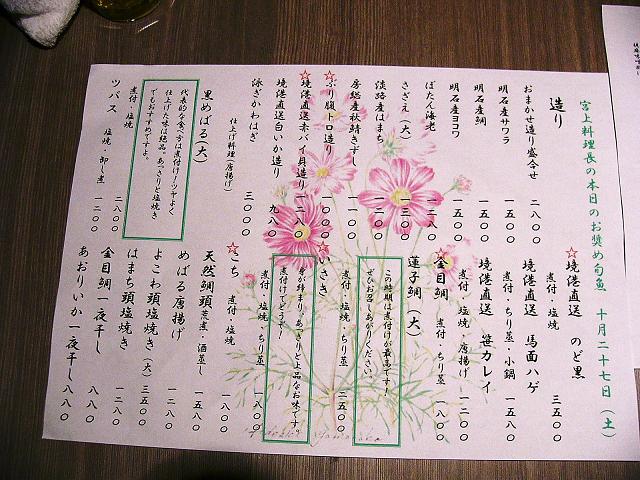 宮上料理長の本日のお奨め旬魚 十月二十七日(土)
造り
おまかせ造り盛合せ 二八〇〇
明石産サワラ 一五〇〇
明石産鯛 一五〇〇
明石産ヨコワ 一五〇〇
ぼたん海老 一二八〇
さざえ(大) 一三〇〇
淡路産はまち 一二〇〇
房総産秋鯖きずし 一一〇〇
☆ぶり腹トロ造り 一〇〇〇
☆境港直送赤バイ貝造り 一二八〇
境港直送白いか造り 九八〇
泳ぎかわはぎ 三〇〇〇
仕上げ料理(唐揚げ)
黒めばる(大)
代表的な食べ方は煮付け!ツヤよく
仕上げた味は絶品。あっさりと塩焼き
でもおすすめですよ。
煮付・塩焼 二八〇〇
ツバス 塩焼・卸し煮 一二〇〇
☆境港直送 のど黒
煮付・塩焼 三五〇〇
境港直送 馬面ハゲ
煮付・ちり蒸・小鍋 一五八〇
境港直送 笹カレイ
煮付・塩焼・唐揚げ 一二〇〇
☆金目鯛 煮付・ちり蒸 一八〇〇
蓮子鯛(大)
この時期は煮付けが最高です!
ぜひお召しあがりください。
煮付・塩焼 ちり蒸 二五〇〇
☆いさき
身が締まり、あっさりと上品なお味です
煮付けでどうぞ!
煮付・塩焼 ちり蒸 一八〇〇
☆こち 煮付・塩焼 一八〇〇
天然鯛頭 荒煮・酒蒸し 一五八〇
めばる唐揚げ 一二八〇
よこわ頭塩焼き(大) 三五〇〇
はまち頭塩焼き 一二八〇
金目鯛一夜干し 八八〇
あおりいか一夜干し 八八〇